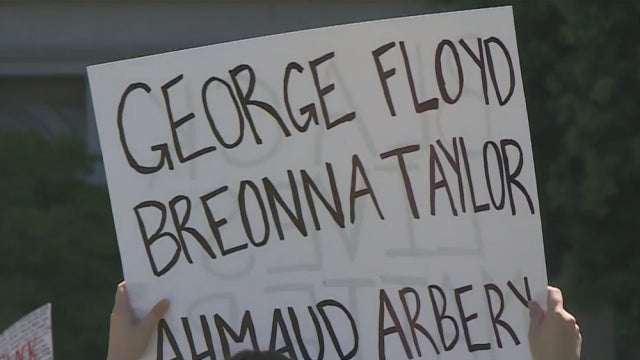 GEORGE FLOYD
BREONNA TAYLOR
AHMAUD ARBERY